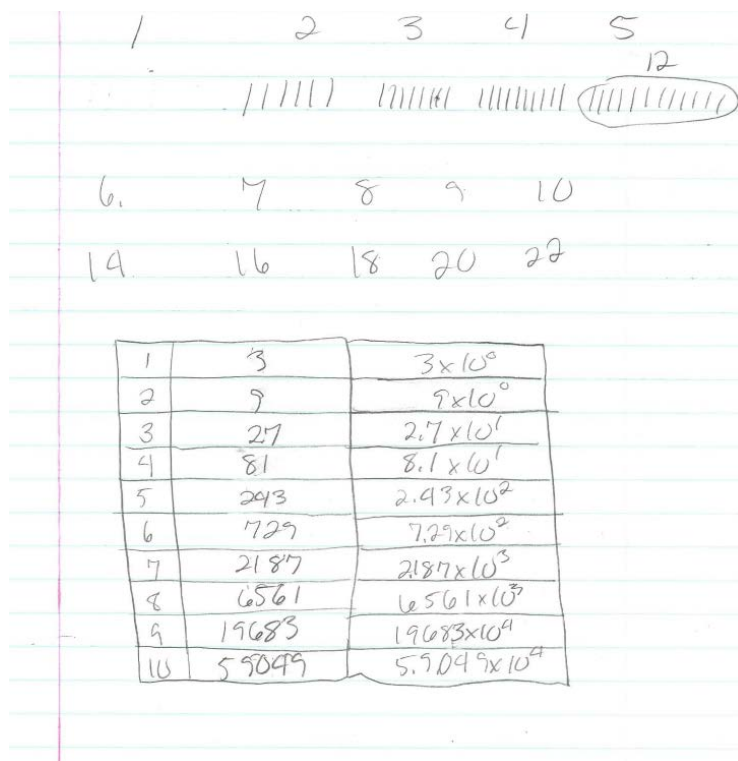 1 2 3 4 5
12
6. 7 8 9 10
14 16 18 20 22
1 3 3x10⁰
2 9 9x10⁰
3 27 2.7x10¹
4 81 8.1x10¹
5 243 2.43x10²
6 729 7.29x10²
7 2187 2.187x10³
8 6561 6561x10³
9 19683 19683x10⁴
10 59049 5.9049x10⁴